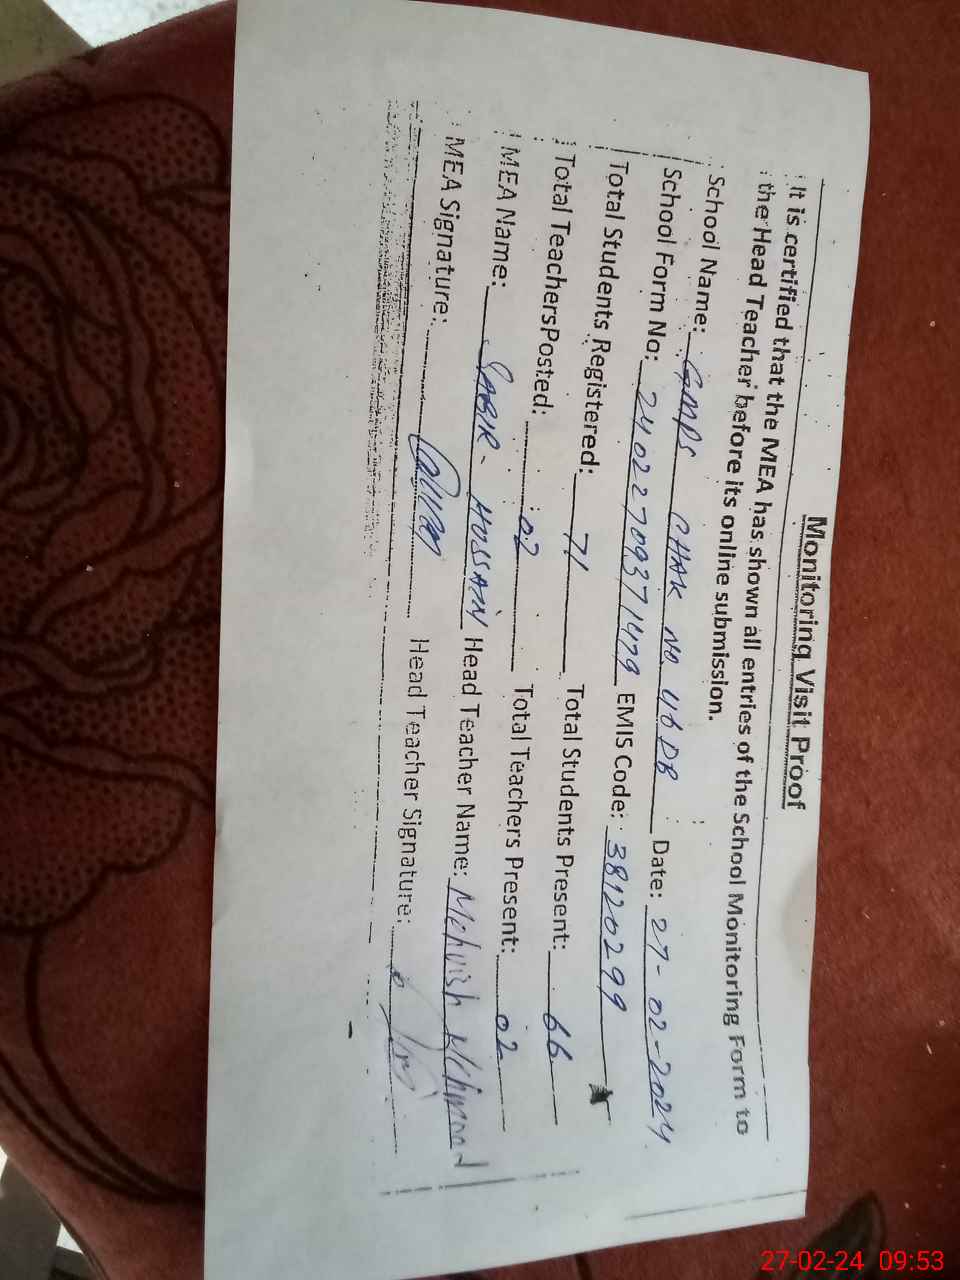 Monitoring Visit Proof
It is certified that the MEA has shown all entries of the School Monitoring Form to
the Head Teacher before its online submission.
School Name: GMPS CHAK NO 46 DB Date: 27-02-2024
School Form No: 24022709371479 EMIS Code: 38120299
Total Students Registered: 71 Total Students Present: 66
Total TeachersPosted: 02 Total Teachers Present: 02
MEA Name: SABIR - HUSSAIN Head Teacher Name: Mehvish Mehmood
MEA Signature: Head Teacher Signature:
27-02-24 09:53